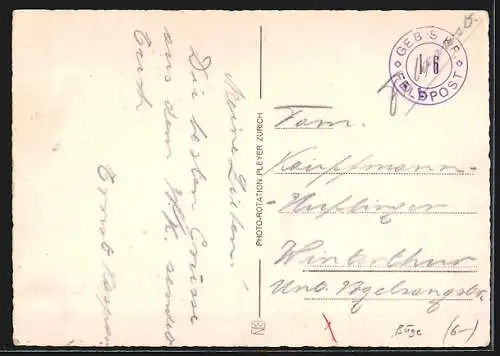 Meine Lieben!
Die besten Grüsse
aus dem W.K. sendet
Euch
Ernst
PHOTO-ROTATION PLEYER ZURICH
GEB S BR
FELDPOST
Fam.
Kauffmann-
Winterthur
Unt. Vogelsangstr.
Büge (6-)